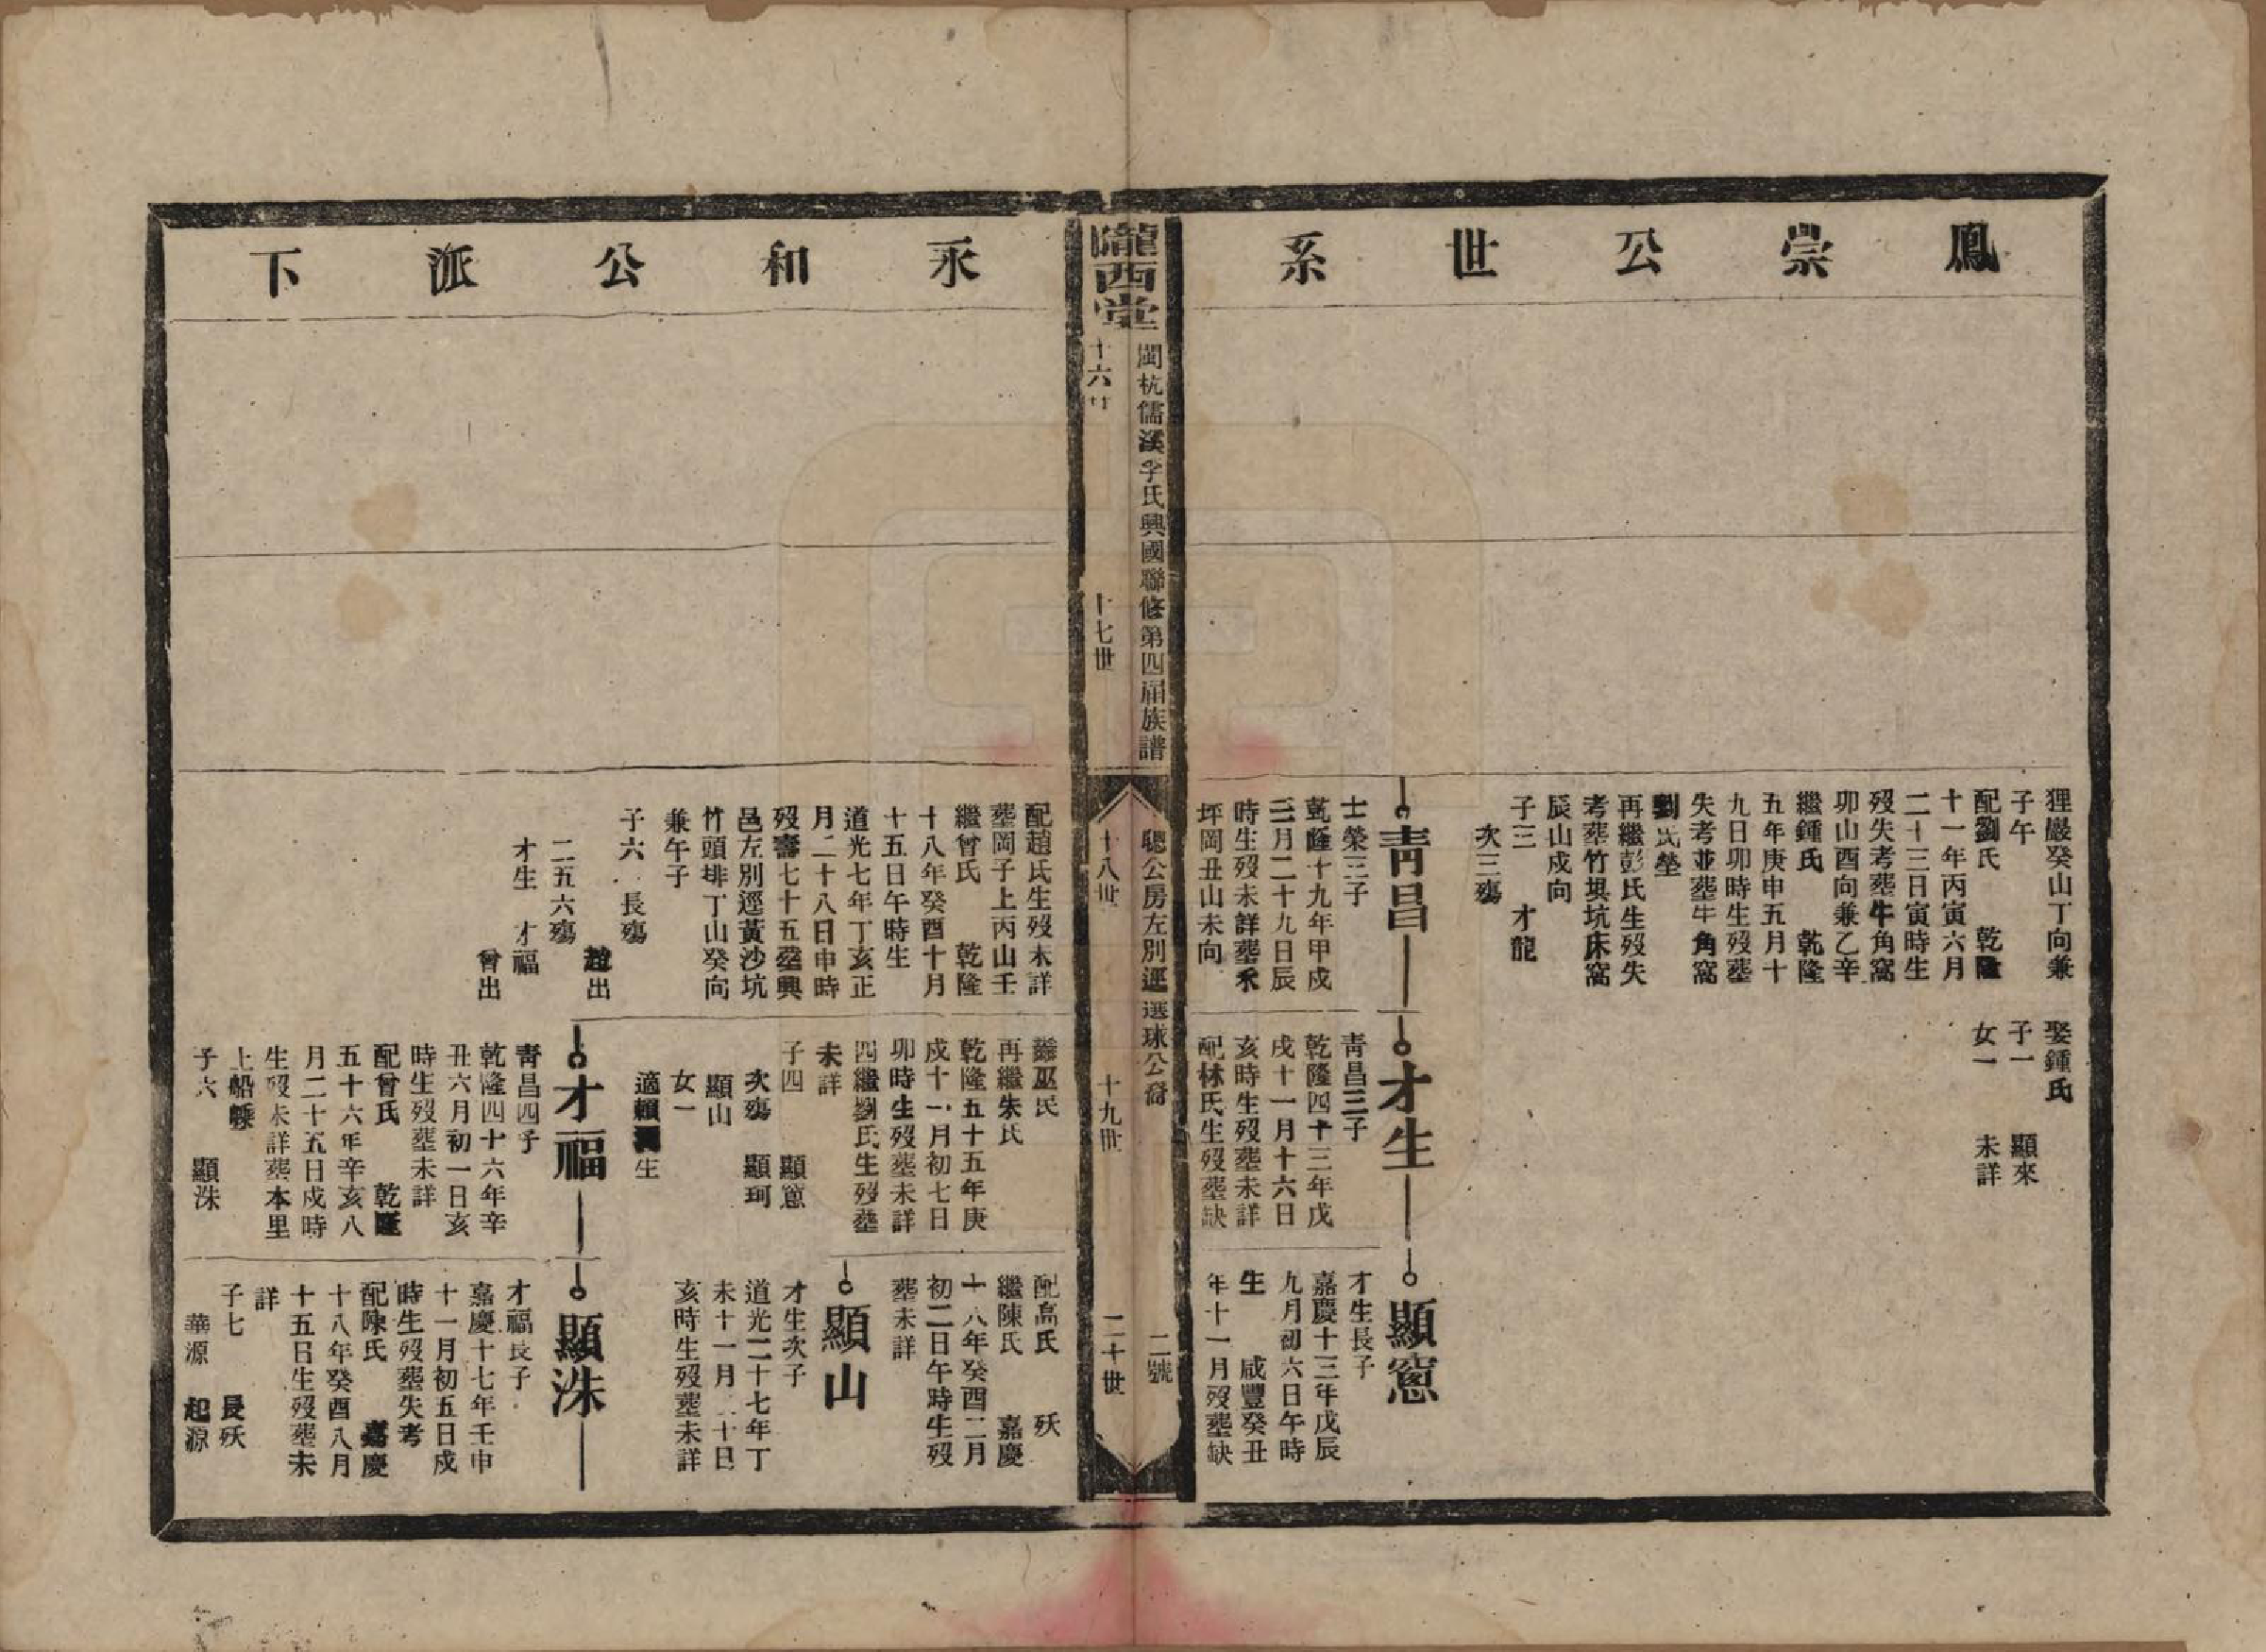 鳳崇公世系
狸巖癸山丁向兼
子午
配劉氏 乾隆
十一年丙寅六月
二十三日寅時生
歿失考葬牛角窩
卯山酉向兼乙辛
繼鍾氏 乾隆
五年庚申五月十
九日卯時生歿葬
失考並葬牛角窩
劉氏塋
再繼彭氏生歿失
考葬竹埧坑床窩
辰山戍向
子三 才龍
次三殤
娶鍾氏
子一 顯來
女一 未詳
青昌
士榮三子
乾隆十九年甲戍
三月二十九日辰
時生歿未詳葬禾
坪岡丑山未向
才生
青昌三子
乾隆四十三年戊
戍十一月十六日
亥時生歿葬未詳
配林氏生歿葬缺
顯窻
才生長子
嘉慶十三年戊辰
九月初六日午時
生 咸豐癸丑
年十一月歿葬缺
隴西堂
閩杭儒溪李氏興國聯修第四屆族譜
十六世
十七世
聰公房左別逕選球公裔
二號
十八世
十九世
二十世
永和公派下
配趙氏生歿未詳
葬岡子上丙山壬
繼曾氏 乾隆
十八年癸酉十月
十五日午時生
道光七年丁亥正
月二十八日申時
歿壽七十五葬興
邑左別逕黃沙坑
竹頭排丁山癸向
兼午子
子六 長殤
趙出
二五六殤
才生 才福
曾出
繼巫氏
再繼朱氏
乾隆五十五年庚
戍十一月初七日
卯時生歿葬未詳
四繼劉氏生歿葬
未詳
子四 顯窻
次殤 顯珂
顯山
女一
適賴 生
配高氏 殀
繼陳氏 嘉慶
十八年癸酉二月
初二日午時生歿
葬未詳
顯山
才生次子
道光二十七年丁
未十一月二十日
亥時生歿葬未詳
才福
青昌四子
乾隆四十六年辛
丑六月初一日亥
時生歿葬未詳
配曾氏 乾隆
五十六年辛亥八
月二十五日戍時
生歿未詳葬本里
上船
子六 顯洙
顯洙
才福長子
嘉慶十七年壬申
十一月初五日戍
時生歿葬失考
配陳氏 嘉慶
十八年癸酉八月
十五日生歿葬未
詳
子七 長殀
華源 起源